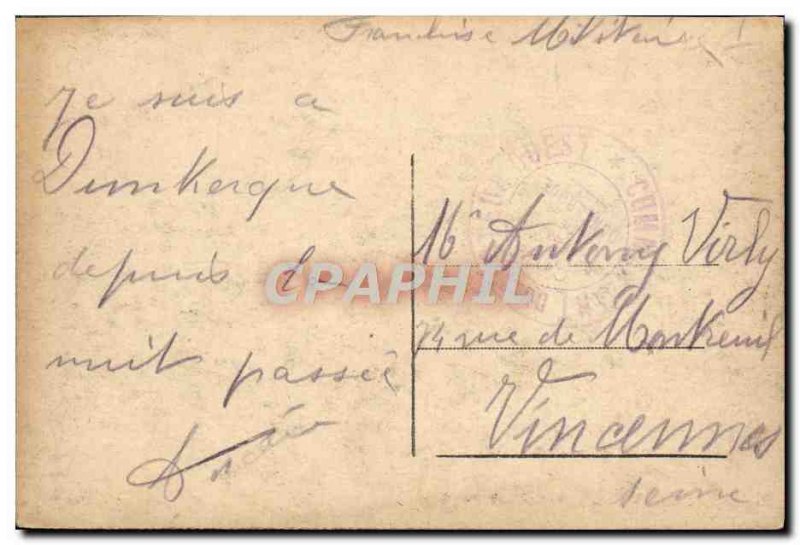 Franchise Militaire
Je suis a
Dunkerque
depuis la
nuit passée
Mr Antony Virly
rue de Montreuil
Vincennes
Seine
CPAPHIL
OUEST * COMM